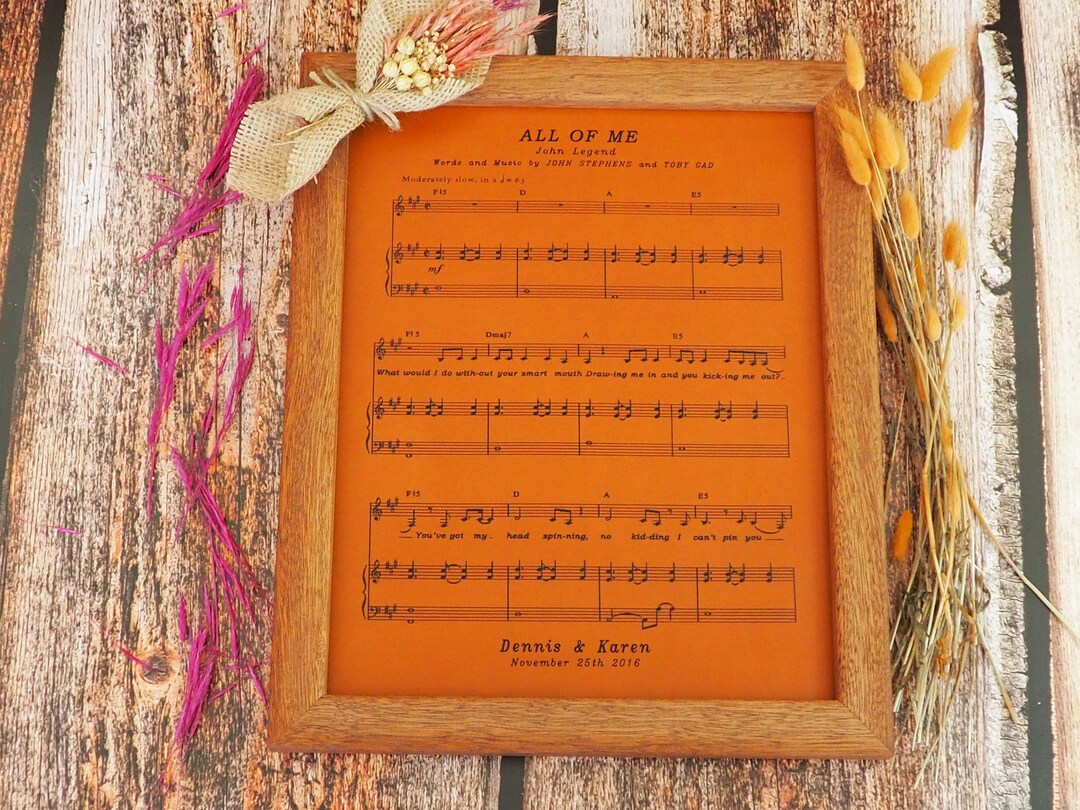 ALL OF ME
John Legend
Words and Music by JOHN STEPHENS and TOBY GAD
Moderately slow, in 2 ♩= 63
F♯5 D A E5
mf
F♯5 Dmaj7 A E5
What would I do with-out your smart mouth Draw-ing me in and you kick-ing me out?
F♯5 D A E5
You've got my head spin-ning, no kid-ding I can't pin you
Dennis & Karen
November 25th 2016